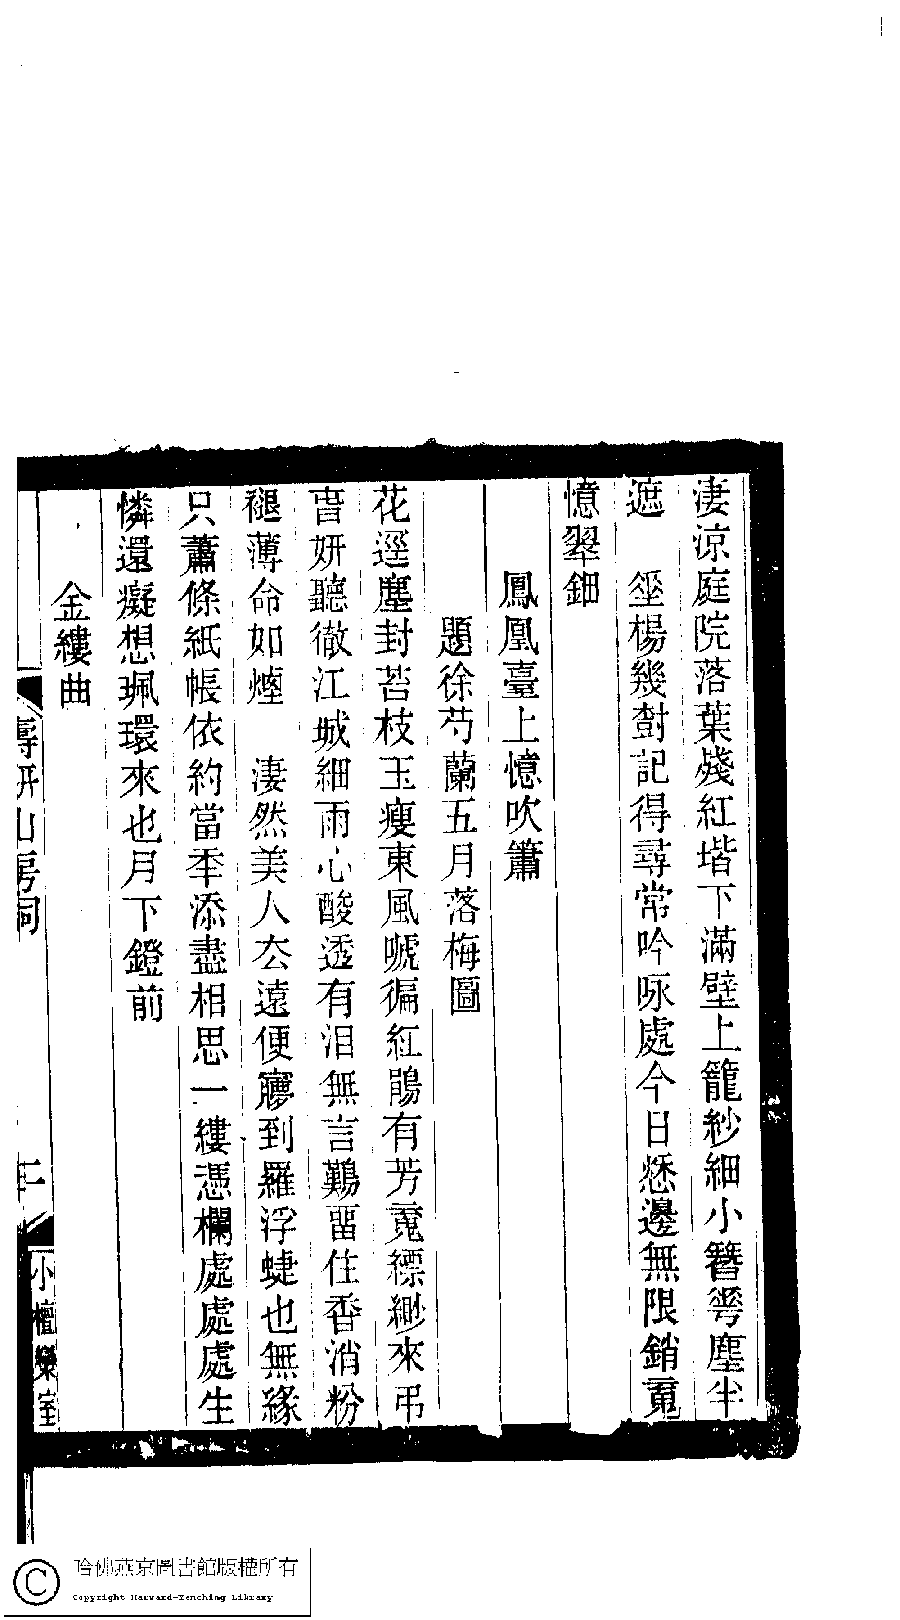 淒涼庭院落葉殘紅堦下滿壁上籠紗細小簪咢塵半
遮　垂楊幾尌記得尋常吟咏處今日愁邊無限銷䰟
憶翠鈿
鳳凰臺上憶吹簫
題徐芍蘭五月落梅圖
花逕塵封苔枝玉瘦東風唬徧紅鵑有芳䰟縹緲來弔
昔妍聽徹江城細雨心酸透有泪無言鷄畱住香消粉
褪薄命如煙　淒然美人厺遠便寱到羅浮蜨也無緣
只蕭條紙帳依約當秊添盡相思一縷憑欄處處處生
憐還癡想珮環來也月下鐙前
金縷曲
壽研山房詞
二
小檀欒室
哈佛燕京圖書館版權所有
Copyright Harvard-Yenching Library